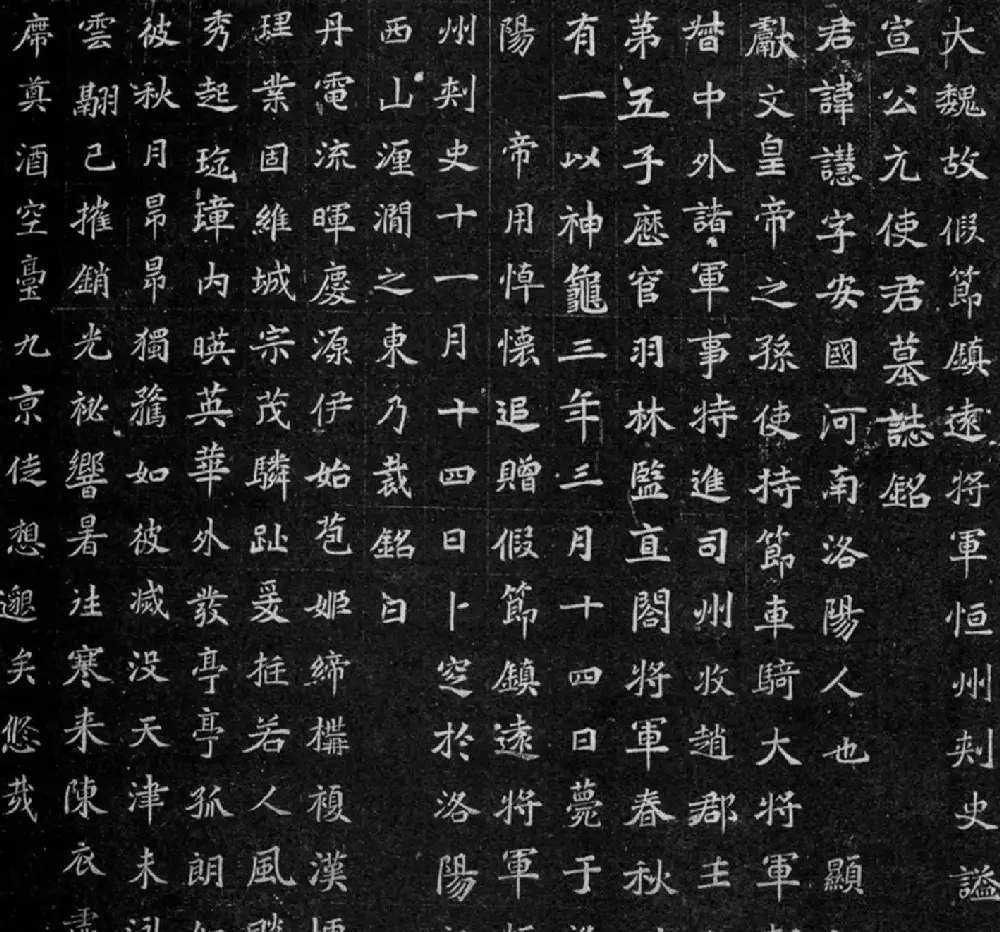 大魏故假節鎮遠將軍恒州刾史謚
宣公元使君墓誌銘
君諱譿字安國河南洛陽人也 顯
獻文皇帝之孫使持節車騎大將軍
督中外諸軍事特進司州牧趙郡王
第五子歷官羽林監直閤將軍春秋
有一以神龜三年三月十四日薨于
陽 帝用悼懷追贈假節鎮遠將軍
州刾史十一月十四日卜窆於洛陽
西山瀍澗之東乃裁銘曰
丹電流暉慶源伊始苞姬締構複漢
理業固維城宗茂驎趾爰挺若人風
秀起琁璋內暎英華外發亭亭孤朗
彼秋月昂昂獨騖如彼減没天津未
雲翮已摧銷光祕響暑往寒来陳衣
席奠酒空臺九京徒想邈矣悠哉